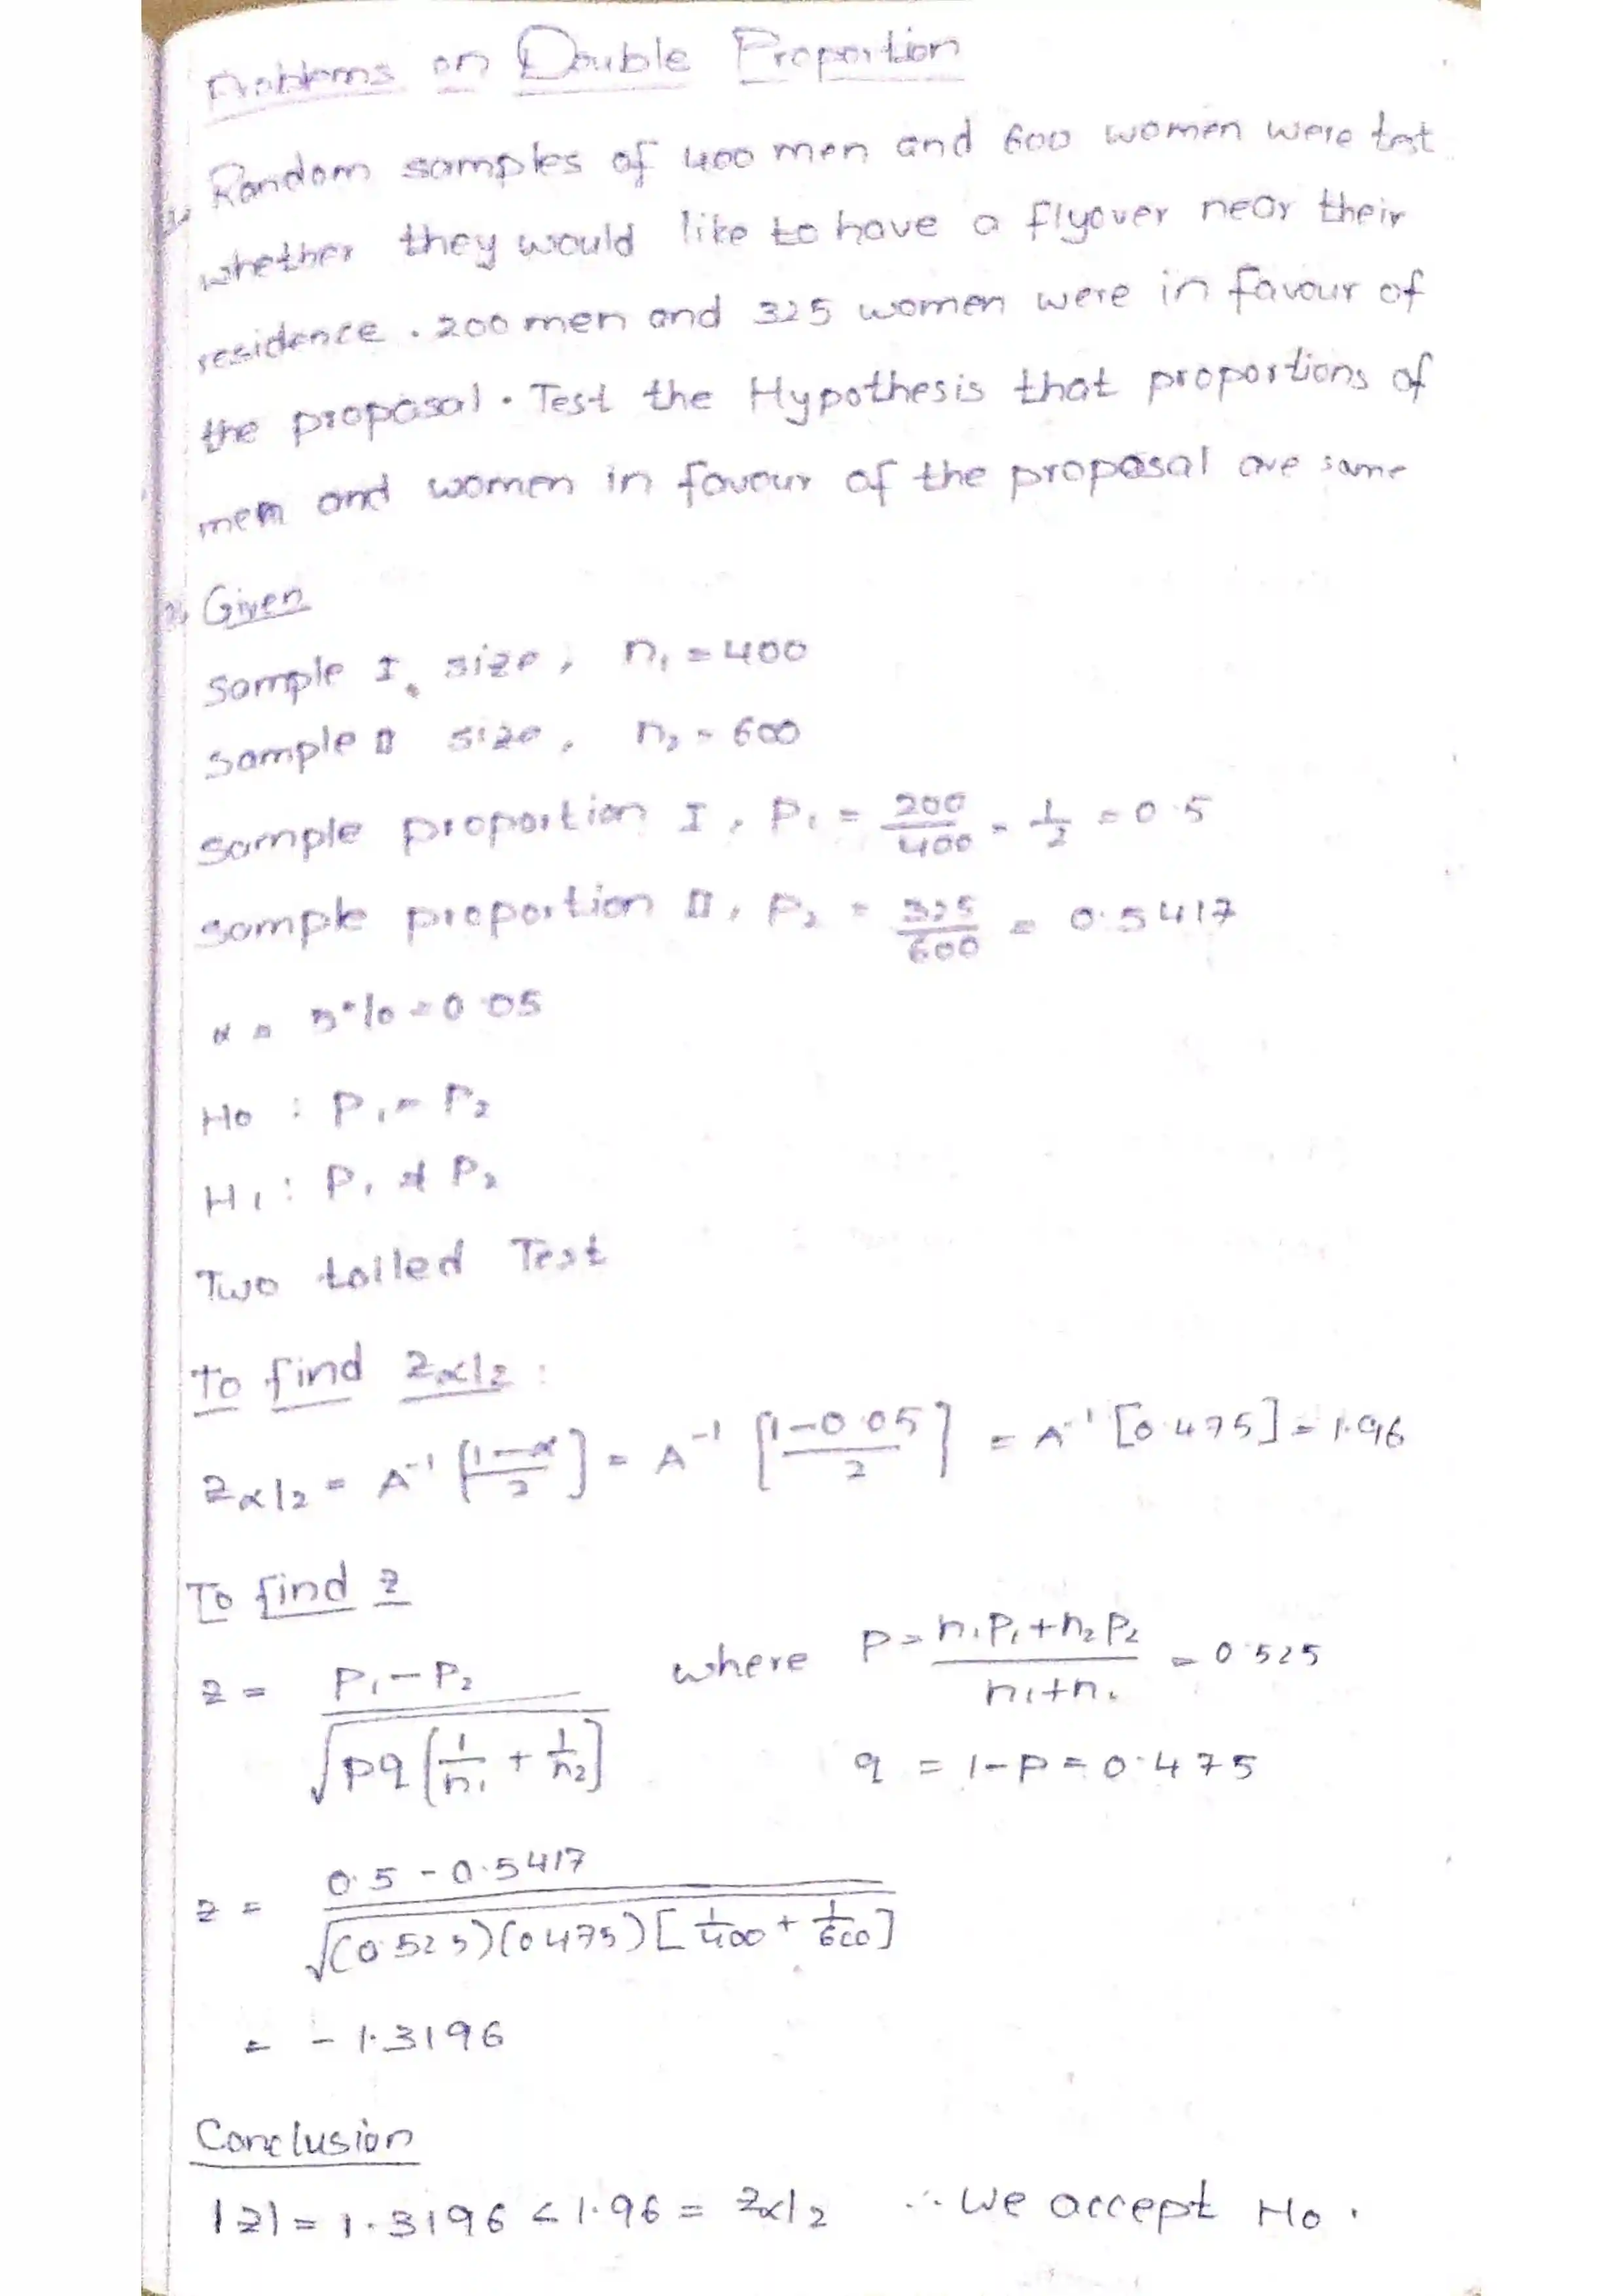 Problems on Double Proportion
1. Random samples of 400 men and 600 women were test
whether they would like to have a flyover near their
residence. 200 men and 325 women were in favour of
the proposal. Test the Hypothesis that proportions of
men and women in favour of the proposal are same
Given
Sample I size, n₁ = 400
Sample II size, n₂ = 600
Sample proportion I, P₁ = 200/400 = 1/2 = 0.5
Sample proportion II, P₂ = 325/600 = 0.5417
α = 5% = 0.05
H₀ : P₁ = P₂
H₁ : P₁ ≠ P₂
Two tailed Test
To find Zα/2 :
Zα/2 = A⁻¹ [(1-α)/2] = A⁻¹ [(1-0.05)/2] = A⁻¹ [0.475] = 1.96
To find z
z = (P₁ - P₂)/√(pq[1/n₁ + 1/n₂]) where P = (n₁P₁ + n₂P₂)/(n₁+n₂) = 0.525
q = 1-P = 0.475
z = (0.5 - 0.5417)/√((0.525)(0.475)[1/400 + 1/600])
= -1.3196
Conclusion
|z| = 1.3196 < 1.96 = Zα/2 ∴ We accept H₀.